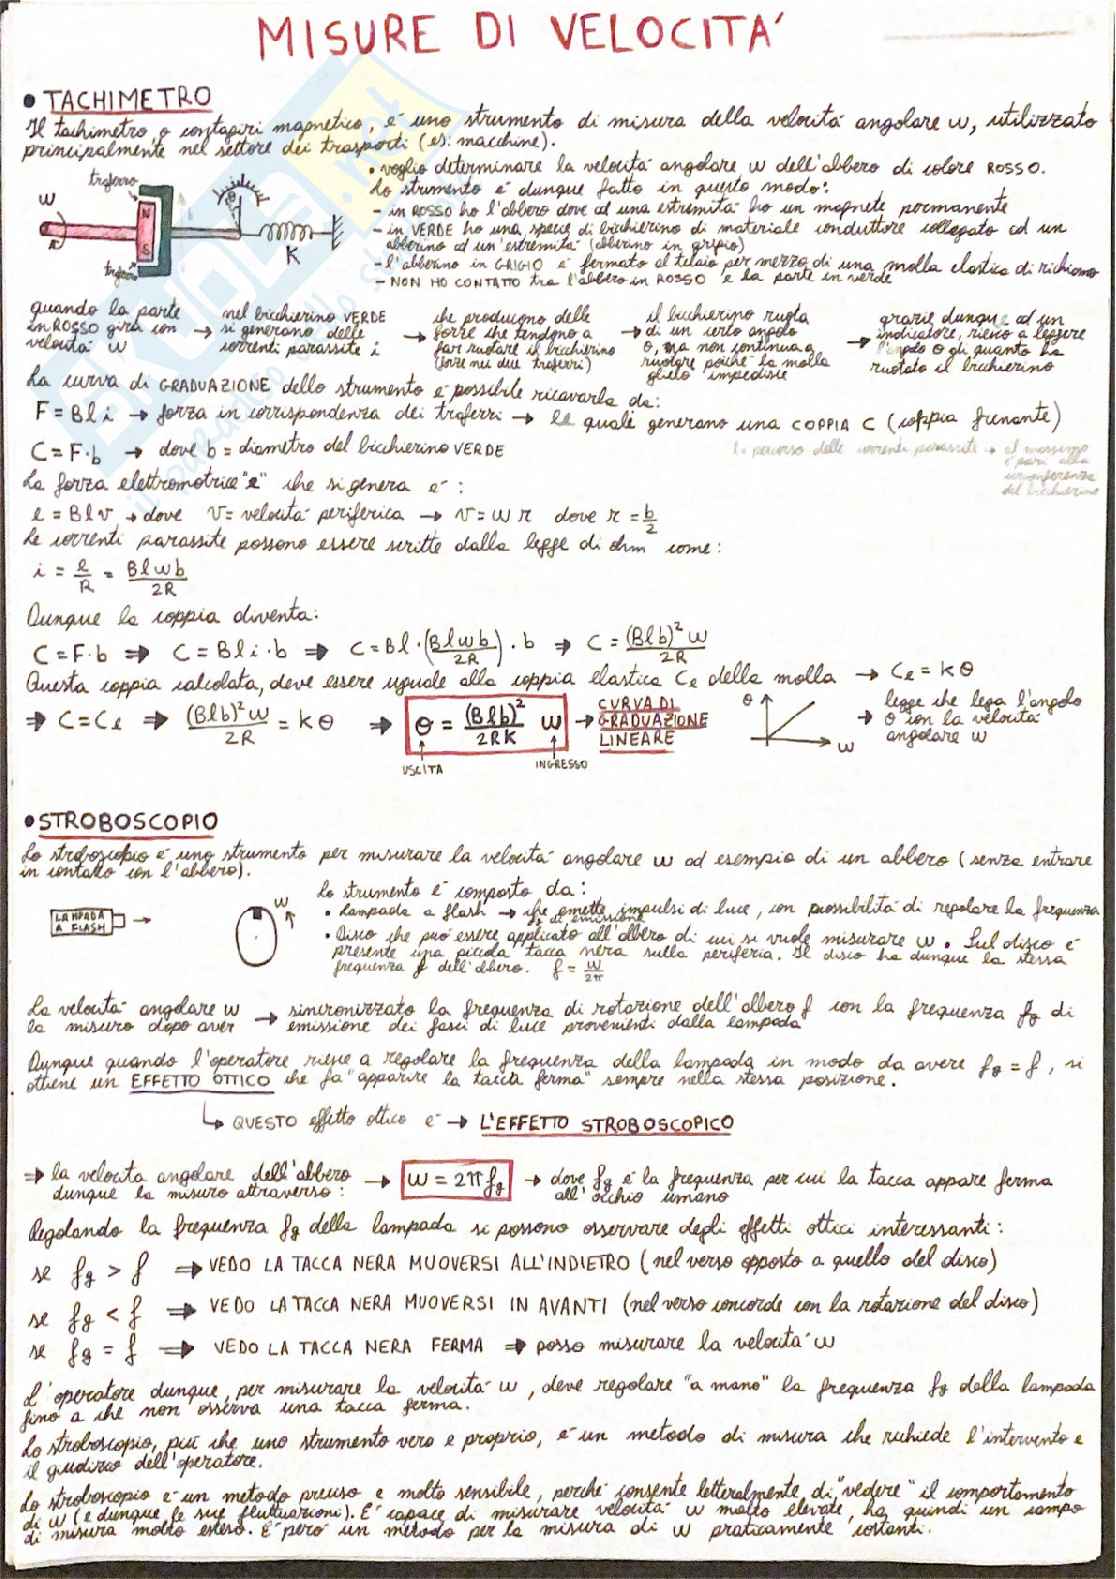 MISURE DI VELOCITA'
• TACHIMETRO
Il tachimetro, o contagiri magnetico, è uno strumento di misura della velocità angolare ω, utilizzato
principalmente nel settore dei trasporti (es. macchine).
• voglio determinare la velocità angolare ω dell'albero di colore ROSSO.
Lo strumento è dunque fatto in questo modo:
- in ROSSO ho l'albero dove ad una estremità ho un magnete permanente
- in VERDE ho una specie di bicchierino di materiale conduttore collegato ad un
alberino ad un'estremità (alberino in grigio)
- l'alberino in GRIGIO è fermato al telaio per mezzo di una molla elastica di richiamo
- NON HO CONTATTO tra l'albero in ROSSO e la parte in verde
traferro
ω
N
S
θ
K
R
traferro
quando la parte
in ROSSO gira con
velocità ω
→ nel bicchierino VERDE
si generano delle
correnti parassite i
→ che producono delle
forze che tendono a
far ruotare il bicchierino
(forze nei due traferri)
→ il bicchierino ruota
di un certo angolo
θ, ma non continua a
ruotare poiché la molla
glielo impedisce
→ grazie dunque ad un
indicatore, riesco a leggere
l'angolo θ di quanto ha
ruotato il bicchierino
La curva di GRADUAZIONE dello strumento è possibile ricavarla da:
F = B l i → forza in corrispondenza dei traferri → le quali generano una COPPIA C (coppia frenante)
C = F · b → dove b = diametro del bicchierino VERDE
l = percorso delle correnti parassite → al massimo
è pari alla
circonferenza
del bicchierino
La forza elettromotrice "e" che si genera è:
e = B l v → dove v = velocità periferica → v = ω r dove r = b/2
Le correnti parassite possono essere scritte dalla legge di ohm come:
i = e/R = B l ω b / 2R
Dunque la coppia diventa:
C = F · b ⇒ C = B l i · b ⇒ C = B l · (B l ω b / 2R) · b ⇒ C = (B l b)² ω / 2R
Questa coppia calcolata, deve essere uguale alla coppia elastica Ce della molla → Ce = K θ
⇒ C = Ce ⇒ (B l b)² ω / 2R = K θ ⇒ θ = (B l b)² / 2RK ω → CURVA DI
GRADUAZIONE
LINEARE
USCITA
INGRESSO
θ
ω
→ legge che lega l'angolo
θ con la velocità
angolare ω
• STROBOSCOPIO
Lo stroboscopio è uno strumento per misurare la velocità angolare ω ad esempio di un albero (senza entrare
in contatto con l'albero).
LAMPADA
A FLASH
→
ω
Lo strumento è composto da:
• Lampada a flash → che emette impulsi di luce, con possibilità di regolare la frequenza
di emissione
• Disco che può essere applicato all'albero di cui si vuole misurare ω. Sul disco è
presente una piccola tacca nera sulla periferia. Il disco ha dunque la stessa
frequenza f dell'albero. f = ω/2π
La velocità angolare ω
la misuro dopo aver
→ sincronizzato la frequenza di rotazione dell'albero f con la frequenza fg di
emissione dei fasci di luce provenienti dalla lampada
Dunque quando l'operatore riesce a regolare la frequenza della lampada in modo da avere fg = f, si
ottiene un EFFETTO OTTICO che fa "apparire la tacca ferma" sempre nella stessa posizione.
↳ QUESTO effetto ottico è → L'EFFETTO STROBOSCOPICO
⇒ la velocità angolare dell'albero
dunque la misuro attraverso:
→ ω = 2π fg → dove fg è la frequenza per cui la tacca appare ferma
all'occhio umano
Regolando la frequenza fg della lampada si possono osservare degli effetti ottici interessanti:
se fg > f ⇒ VEDO LA TACCA NERA MUOVERSI ALL'INDIETRO (nel verso opposto a quello del disco)
se fg < f ⇒ VEDO LA TACCA NERA MUOVERSI IN AVANTI (nel verso concorde con la rotazione del disco)
se fg = f ⇒ VEDO LA TACCA NERA FERMA ⇒ posso misurare la velocità ω
L'operatore dunque, per misurare la velocità ω, deve regolare "a mano" la frequenza fg della lampada
fino a che non osserva una tacca ferma.
Lo stroboscopio, più che uno strumento vero e proprio, è un metodo di misura che richiede l'intervento e
il giudizio dell'operatore.
Lo stroboscopio è un metodo preciso e molto sensibile, perché consente letteralmente di "vedere" il comportamento
di ω (e dunque le sue fluttuazioni). È capace di misurare velocità ω molto elevate, ha quindi un campo
di misura molto esteso. È però un metodo per la misura di ω praticamente costanti.